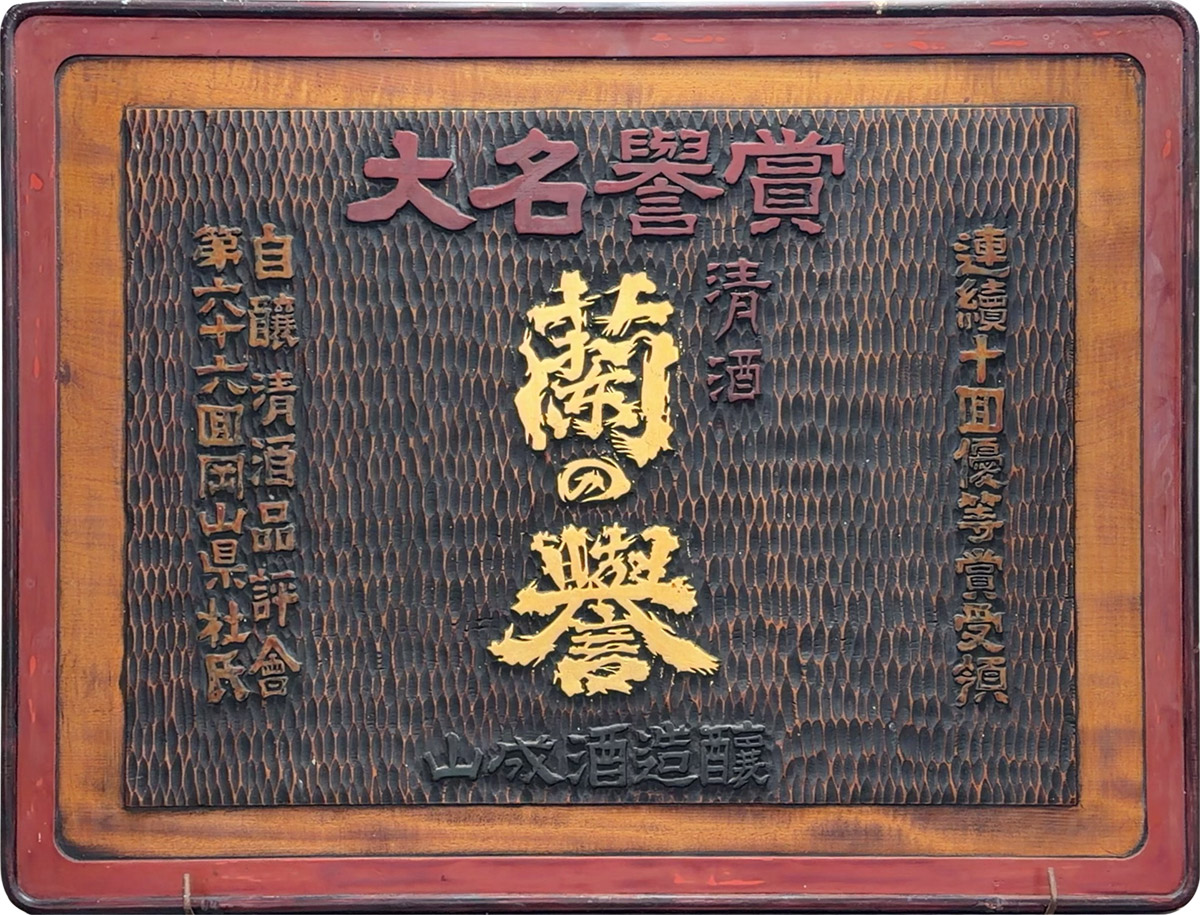 大名譽賞
連續十回優等賞受領
清酒
蘭の譽
自釀清酒品評會
第六十六回岡山県杜氏
山成酒造釀